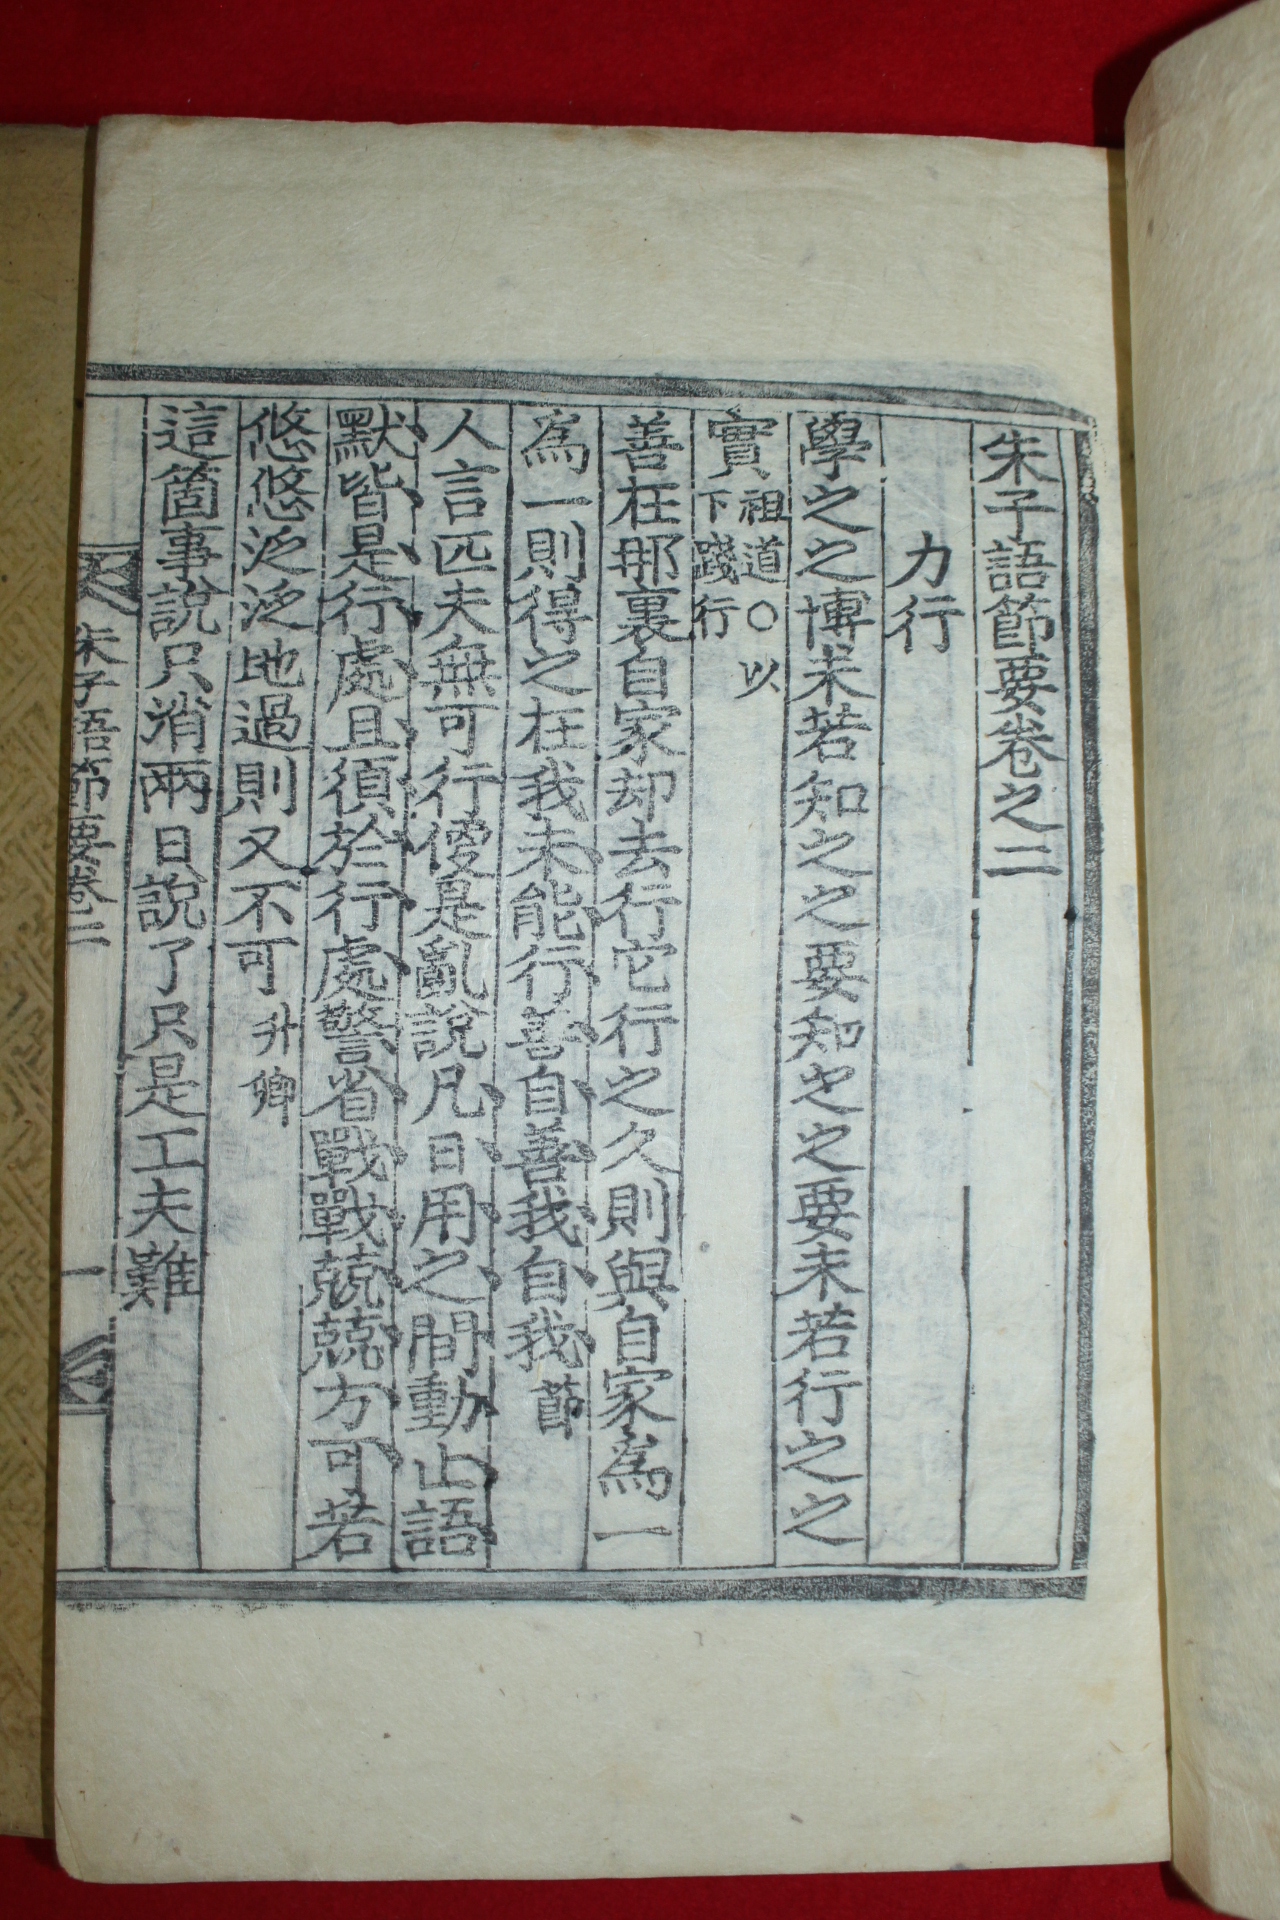 朱子語節要卷之二
力行
學之之博未若知之之要知之之要未若行之之
實祖道○以下踐行
善在那裏自家却去行它行之久則與自家爲一
爲一則得之在我未能行善自善我自我節
人言匹夫無可行便是亂說凡日用之間動止語
默皆是行處且須於行處警省戰戰兢兢方可若
悠悠泛泛地過則又不可升卿
這箇事說只消兩日說了只是工夫難
朱子語節要卷二
一